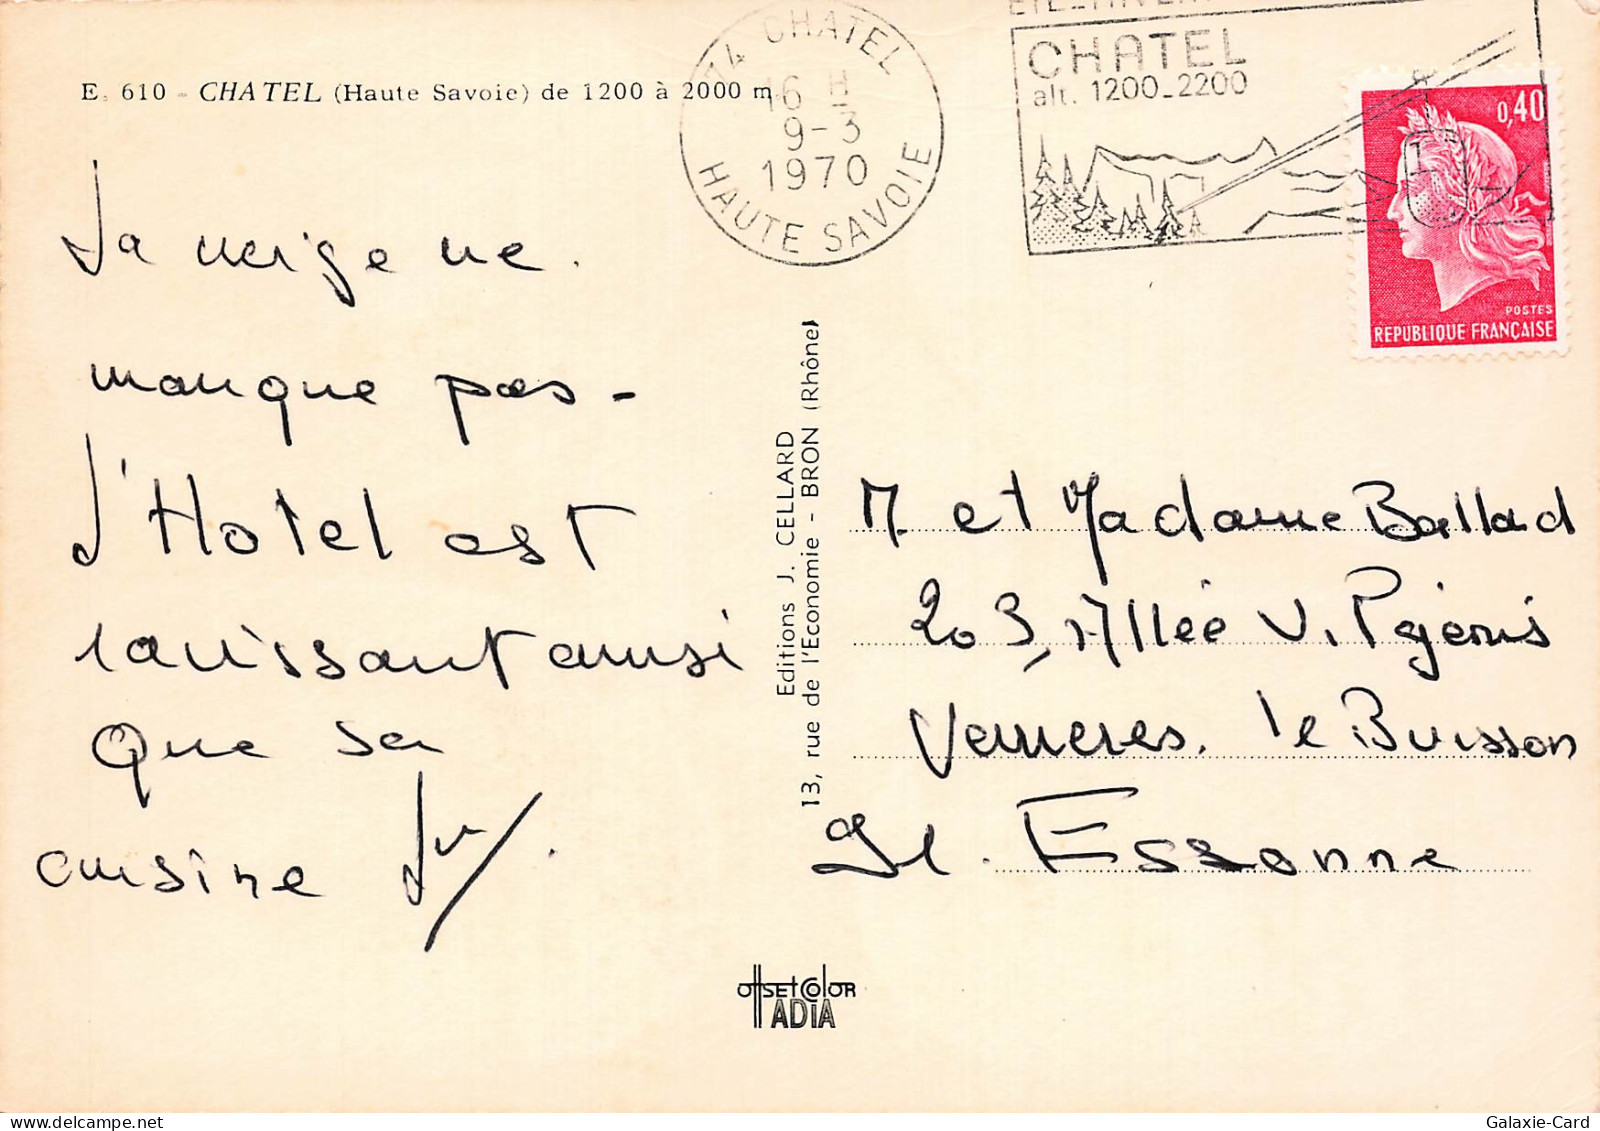 E. 610 - CHATEL (Haute Savoie) de 1200 à 2000 m
74 CHATEL
16 H
9-3
1970
HAUTE SAVOIE
CHATEL
alt. 1200-2200
0,40
POSTES
REPUBLIQUE FRANÇAISE
La neige ne
manque pas -
L'Hotel est
ravissant ainsi
que sa
cuisine
Editions J. CELLARD
13, rue de l'Economie - BRON (Rhône)
M. et Madame Ballad
203, Allée V.
Verrieres. le Buisson
91. Essonne
OffSEt COlOR
ADIA
Galaxie-Card